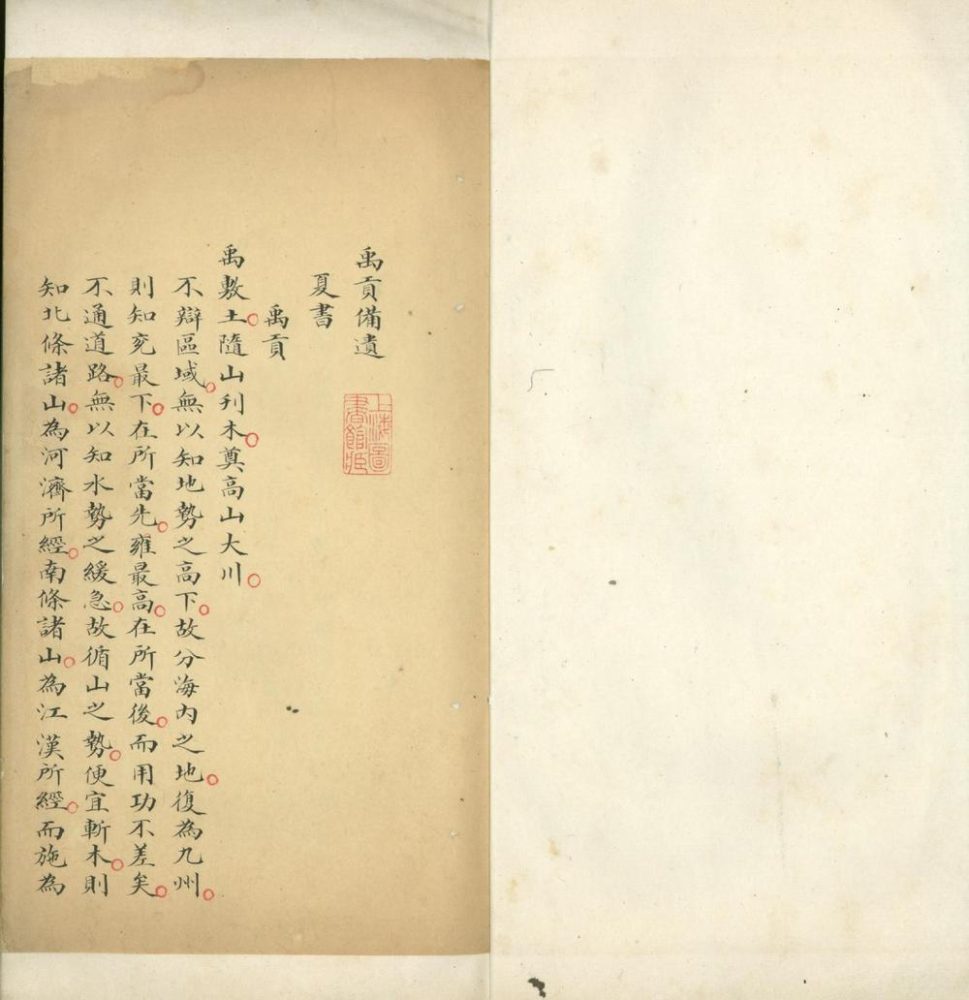 禹貢備遺
上海圖書館藏
夏書
禹貢
禹敷土。隨山刋木。奠高山大川。
不辯區域。無以知地勢之高下。故分海内之地。復為九州。
則知兖最下。在所當先。雍最高。在所當後。而用功不差矣。
不通道路。無以知水勢之緩急。故循山之勢。便宜斬木。則
知北條諸山。為河濟所經。南條諸山。為江漢所經。而施為